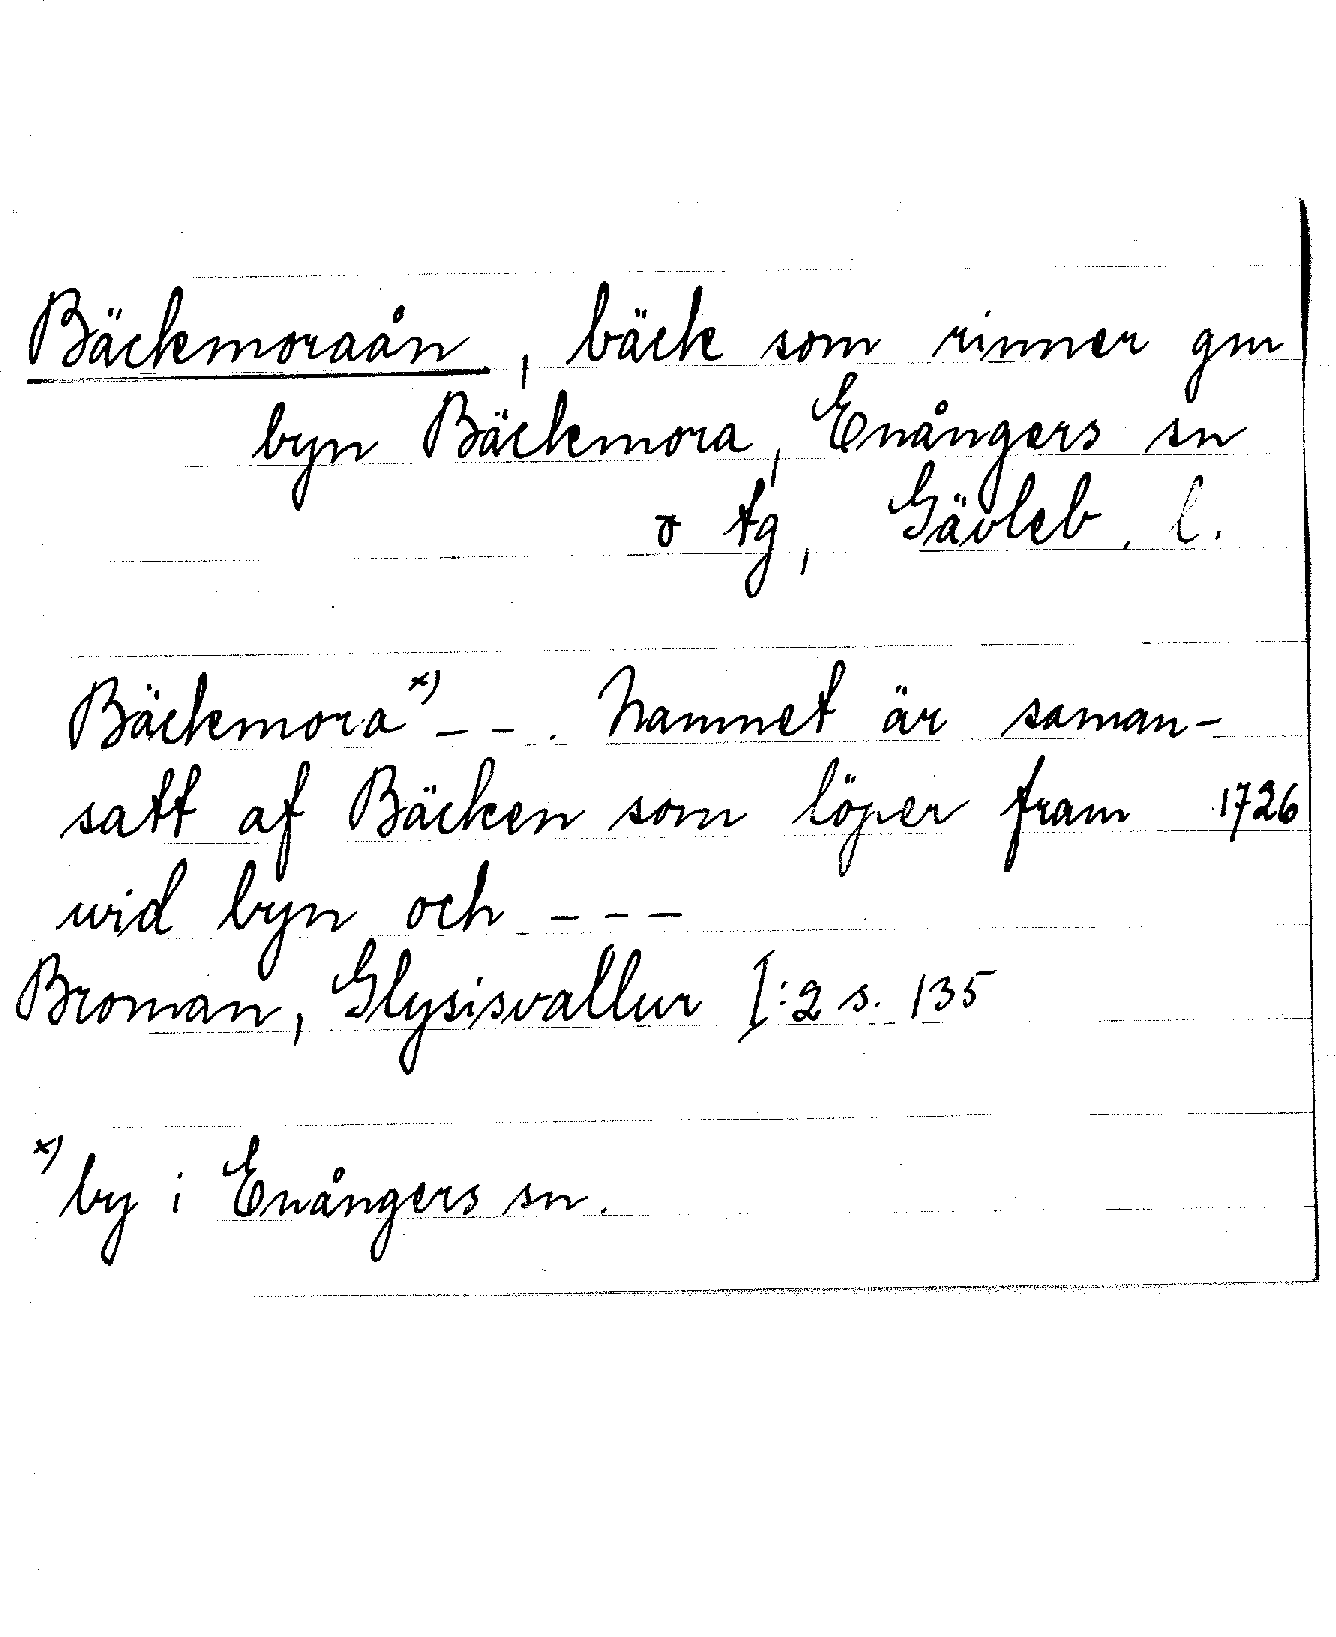 Bäckmoraån, bäck som rinner gm
byn Bäckmora, Enångers sn
o tg, Gävleb. l.
Bäckmora x) - - . Namnet är saman-
satt af Bäcken som löper fram 1726
wid byn och - - -
Broman, Glysisvallur I:2 s. 135
x) by i Enångers sn.